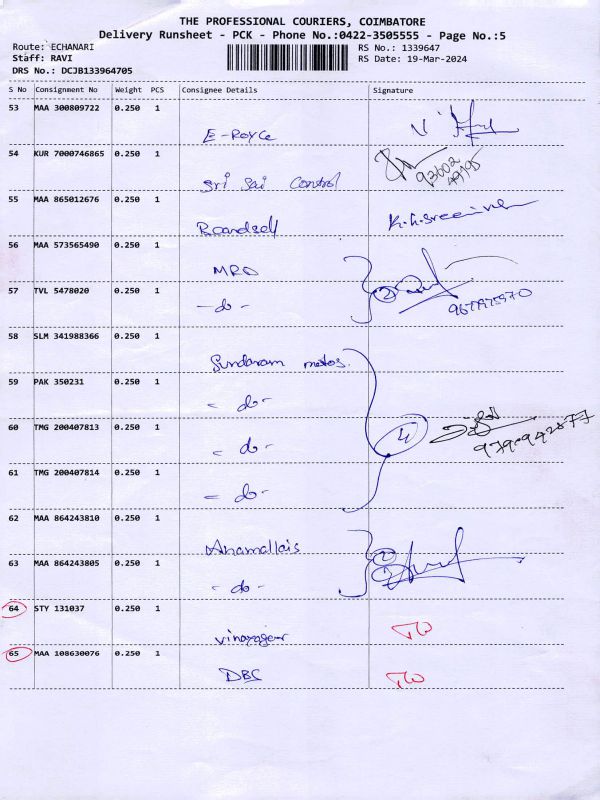 THE PROFESSIONAL COURIERS, COIMBATORE
Delivery Runsheet - PCK - Phone No.:0422-3505555 - Page No.:5
Route: ECHANARI
Staff: RAVI
DRS No.: DCJB133964705
RS No.: 1339647
RS Date: 19-Mar-2024
S No Consignment No Weight PCS Consignee Details Signature
53 MAA 300809722 0.250 1
E-Royce
54 KUR 7000746865 0.250 1
Sri Sai Control
93602
55 MAA 865012676 0.250 1
Roandself
K.G.Sreeniven
56 MAA 573565490 0.250 1
MRO
57 TVL 5478020 0.250 1
-do-
2
58 SLM 341988366 0.250 1
Sundaram motos.
59 PAK 350231 0.250 1
- do-
60 TMG 200407813 0.250 1
- do-
4
61 TMG 200407814 0.250 1
- do-
62 MAA 864243810 0.250 1
Anamallais
63 MAA 864243805 0.250 1
- do -
2
64 STY 131037 0.250 1
vinayager
65 MAA 108630076 0.250 1
DBC